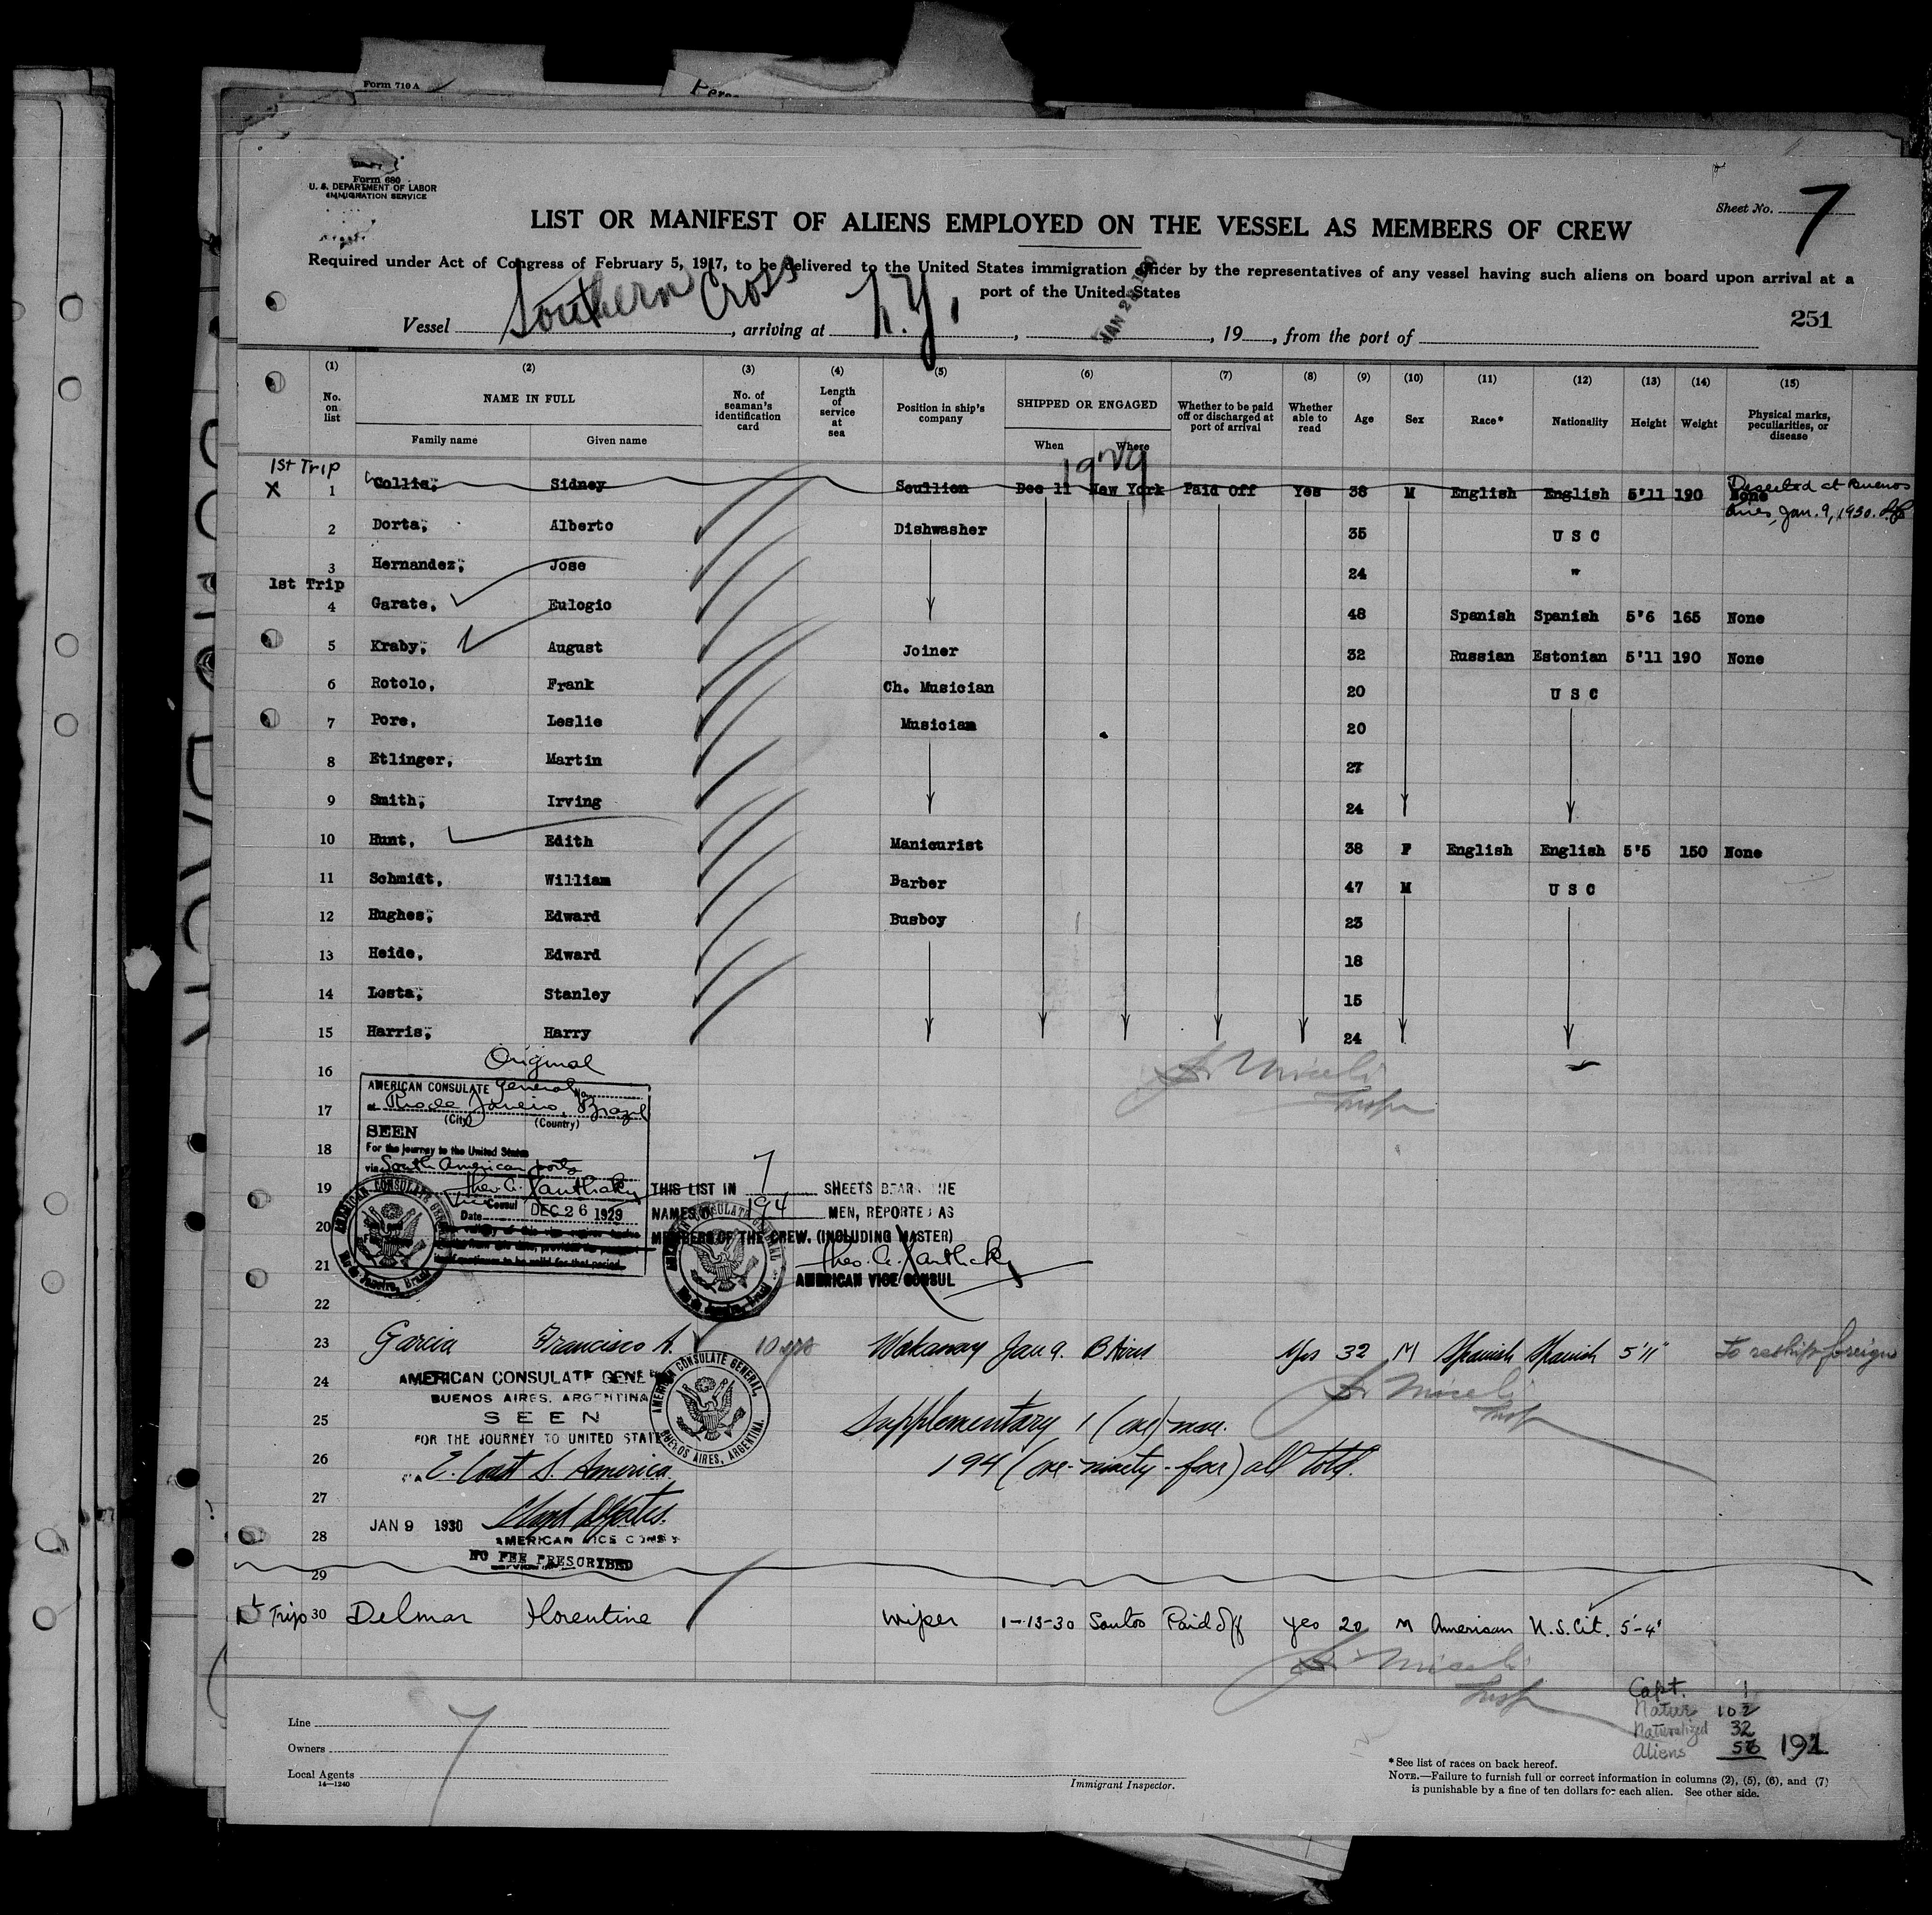 Form 710 A
Form 680
U. S. DEPARTMENT OF LABOR
IMMIGRATION SERVICE
Sheet No. 7
LIST OR MANIFEST OF ALIENS EMPLOYED ON THE VESSEL AS MEMBERS OF CREW
Required under Act of Congress of February 5, 1917, to be delivered to the United States immigration officer by the representatives of any vessel having such aliens on board upon arrival at a
port of the United States
251
Vessel Southern Cross, arriving at N.Y., , 19 , from the port of
(1) (2) (3) (4) (5) (6) (7) (8) (9) (10) (11) (12) (13) (14) (15)
No. on list NAME IN FULL No. of seaman's identification card Length of service at sea Position in ship's company SHIPPED OR ENGAGED Whether to be paid off or discharged at port of arrival Whether able to read Age Sex Race* Nationality Height Weight Physical marks, peculiarities, or disease
Family name Given name When Where
1st Trip 1929
X 1 Collis, Sidney Scullion Dec 11 New York Paid Off Yes 38 M English English 5'11 190 None Deserted at Buenos
Aires, Jan. 9, 1930.
2 Dorta, Alberto Dishwasher 35 U S C
3 Hernandez, Jose 24 "
1st Trip
4 Garate, Eulogio 48 Spanish Spanish 5'6 165 None
5 Kraby, August Joiner 32 Russian Estonian 5'11 190 None
6 Rotolo, Frank Ch. Musician 20 U S C
7 Pore, Leslie Musician 20
8 Etlinger, Martin 27
9 Smith, Irving 24
10 Hunt, Edith Manicurist 38 F English English 5'5 150 None
11 Schmidt, William Barber 47 M U S C
12 Hughes, Edward Busboy 23
13 Heide, Edward 18
14 Losta, Stanley 15
15 Harris, Harry 24
Original
16
AMERICAN CONSULATE General No.
at Rio de Janeiro, Brazil
17
(City) (Country)
SEEN
18
For the journey to the United States
via South American ports
Theo. C. Xanthaky
19
Vice Consul
Date DEC 26 1929
20
THIS LIST IN 7 SHEETS BEARS THE
NAMES OF 194 MEN, REPORTED AS
MEMBERS OF THE CREW. (INCLUDING MASTER)
Theo. C. Xanthaky
AMERICAN VICE CONSUL
AMERICAN CONSULATE GENERAL
Rio de Janeiro, Brazil
21
22
23 Garcia Francisco A. 10 yrs Jan 9. B Aires Yes 32 M Spanish Spanish 5'11" To reship foreign
24
AMERICAN CONSULATE GENERAL
BUENOS AIRES, ARGENTINA
25
SEEN
Supplementary 1 (one) man.
FOR THE JOURNEY TO UNITED STATES
AMERICAN CONSULATE GENERAL, BUENOS AIRES, ARGENTINA.
26
VIA E. Coast S. America
194 (one-ninety-four) all told.
27
JAN 9 1930
28
AMERICAN VICE CONSUL
NO FEE PRESCRIBED
29
1st Trip 30 Delmar Florentine Wiper 1-13-30 Santos Paid off yes 20 M American U.S. Cit. 5'-4"
Capt. 1
Natur 102
Naturalized 32
Aliens 56 191
Line
Owners
Local Agents
14—1240
7
Immigrant Inspector.
*See list of races on back hereof.
NOTE.—Failure to furnish full or correct information in columns (2), (5), (6), and (7)
is punishable by a fine of ten dollars for each alien. See other side.